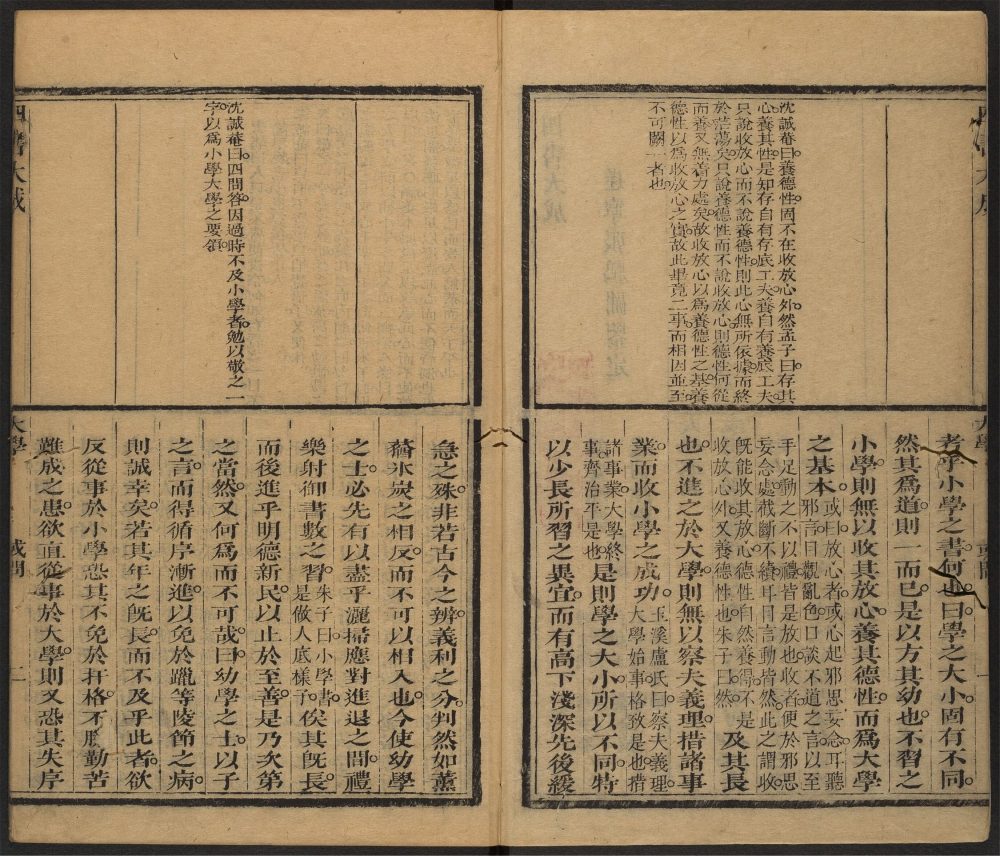 沈誠菴曰養德性固不在收放心外然孟子曰存其
心養其性是知存自有存底工夫養自有養底工夫
只說收放心而不說養德性則此心無所依據而終
於茫蕩矣只說養德性而不說收放心則德性何從
而養又無着力處矣故收放心以爲養德性之基養
德性以爲收放心之實故此畢竟二事而相因並至
不可闕一者也
者乎小學之書何也曰學之大小固有不同
然其爲道則一而已是以方其幼也不習之
小學則無以收其放心養其德性而爲大學
之基本或曰放心者或心起邪思妄念耳聽
邪言目觀亂色口談不道之言以至
手足動之不以禮皆是放也收者便於邪思
妄念處截斷不續耳目言動皆然此之謂收
旣能收其放心德性自然養得不是
收放心外又養德性也朱子曰然及其長
也不進之於大學則無以察夫義理措諸事
業而收小學之成功玉溪盧氏曰察夫義理
大學始事格致是也措
諸事業大學終
事齊治平是也是則學之大小所以不同特
以少長所習之異宜而有高下淺深先後緩
沈誠菴曰四問答因過時不及小學者勉以敬之一
字以爲小學大學之要領
急之殊非若古今之辨義利之分判然如薰
蕕氷炭之相反而不可以相入也今使幼學
之士必先有以盡乎灑掃應對進退之間禮
樂射御書數之習朱子曰小學書
是做人底樣子俟其旣長
而後進乎明德新民以止於至善是乃次第
之當然又何爲而不可哉曰幼學之士以子
之言而得循序漸進以免於躐等陵節之病
則誠幸矣若其年之旣長而不及乎此者欲
反從事於小學恐其不免於扞格不勝勤苦
難成之患欲直從事於大學則又恐其失序
四書大成
大學
或問
二